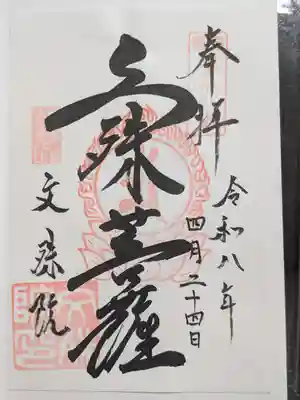 奉拝
令和八年
四月二十四日
文殊菩薩
文殊院